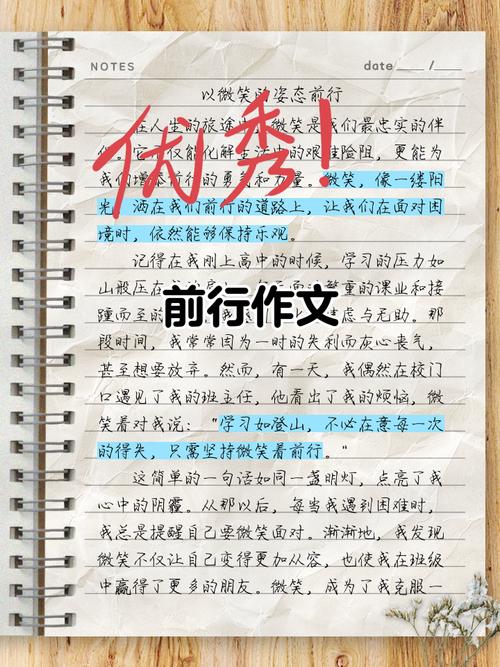 NOTES
date____/__
以微笑的姿态前行
优秀！
在人生的旅途中，微笑是我们最忠实的伴
侣。它不仅能化解生活中的艰难险阻，更能为
我们增添前行的勇气和力量。微笑，像一缕阳
光，洒在我们前行的道路上，让我们在面对困
境时，依然能够保持乐观。
记得在我刚上高中的时候，学习的压力如
山般压在
繁重的课业和接
前行作文
踵而至的
焦虑与无助。那
段时间，我常常因为一时的失利而灰心丧气，
甚至想要放弃。然而，有一天，我偶然在校门
口遇见了我的班主任，他看出了我的烦恼，微
笑着对我说："学习如登山，不必在意每一次
的得失，只需坚持微笑着前行。"
这简单的一句话如同一盏明灯，点亮了我
心中的阴霾。从那以后，每当我遇到困难时，
我总是提醒自己要微笑面对。渐渐地，我发现
微笑不仅让自己变得更加从容，也使我在班级
中赢得了更多的朋友。微笑，成为了我克服一